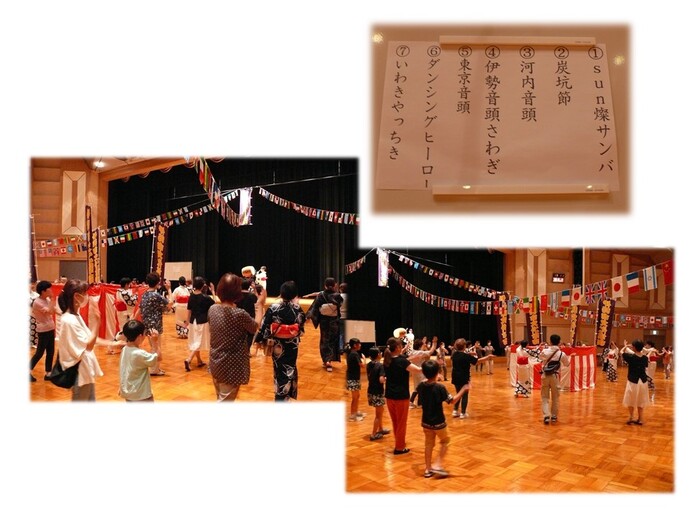 ①sun燦サンバ
②炭坑節
③河内音頭
④伊勢音頭さわぎ
⑤東京音頭
⑥ダンシングヒーロー
⑦いわきやっちき